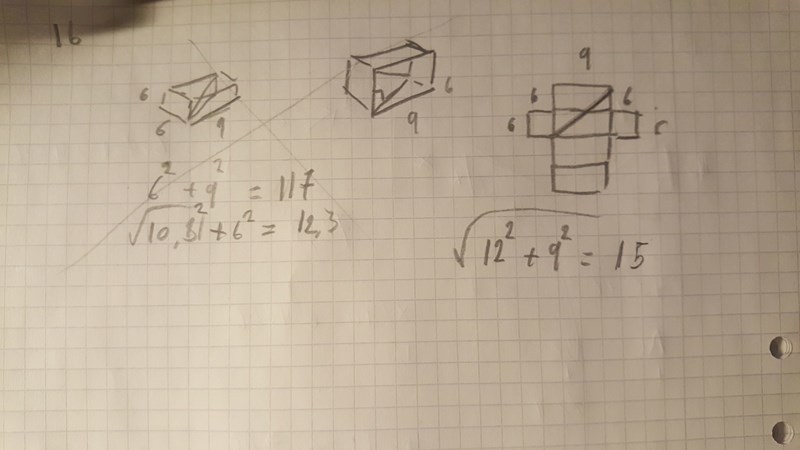 16
6
6 9
6
9
9
6 6
6
6² + 9² = 117
√10,81² + 6² = 12,3
√12² + 9² = 15